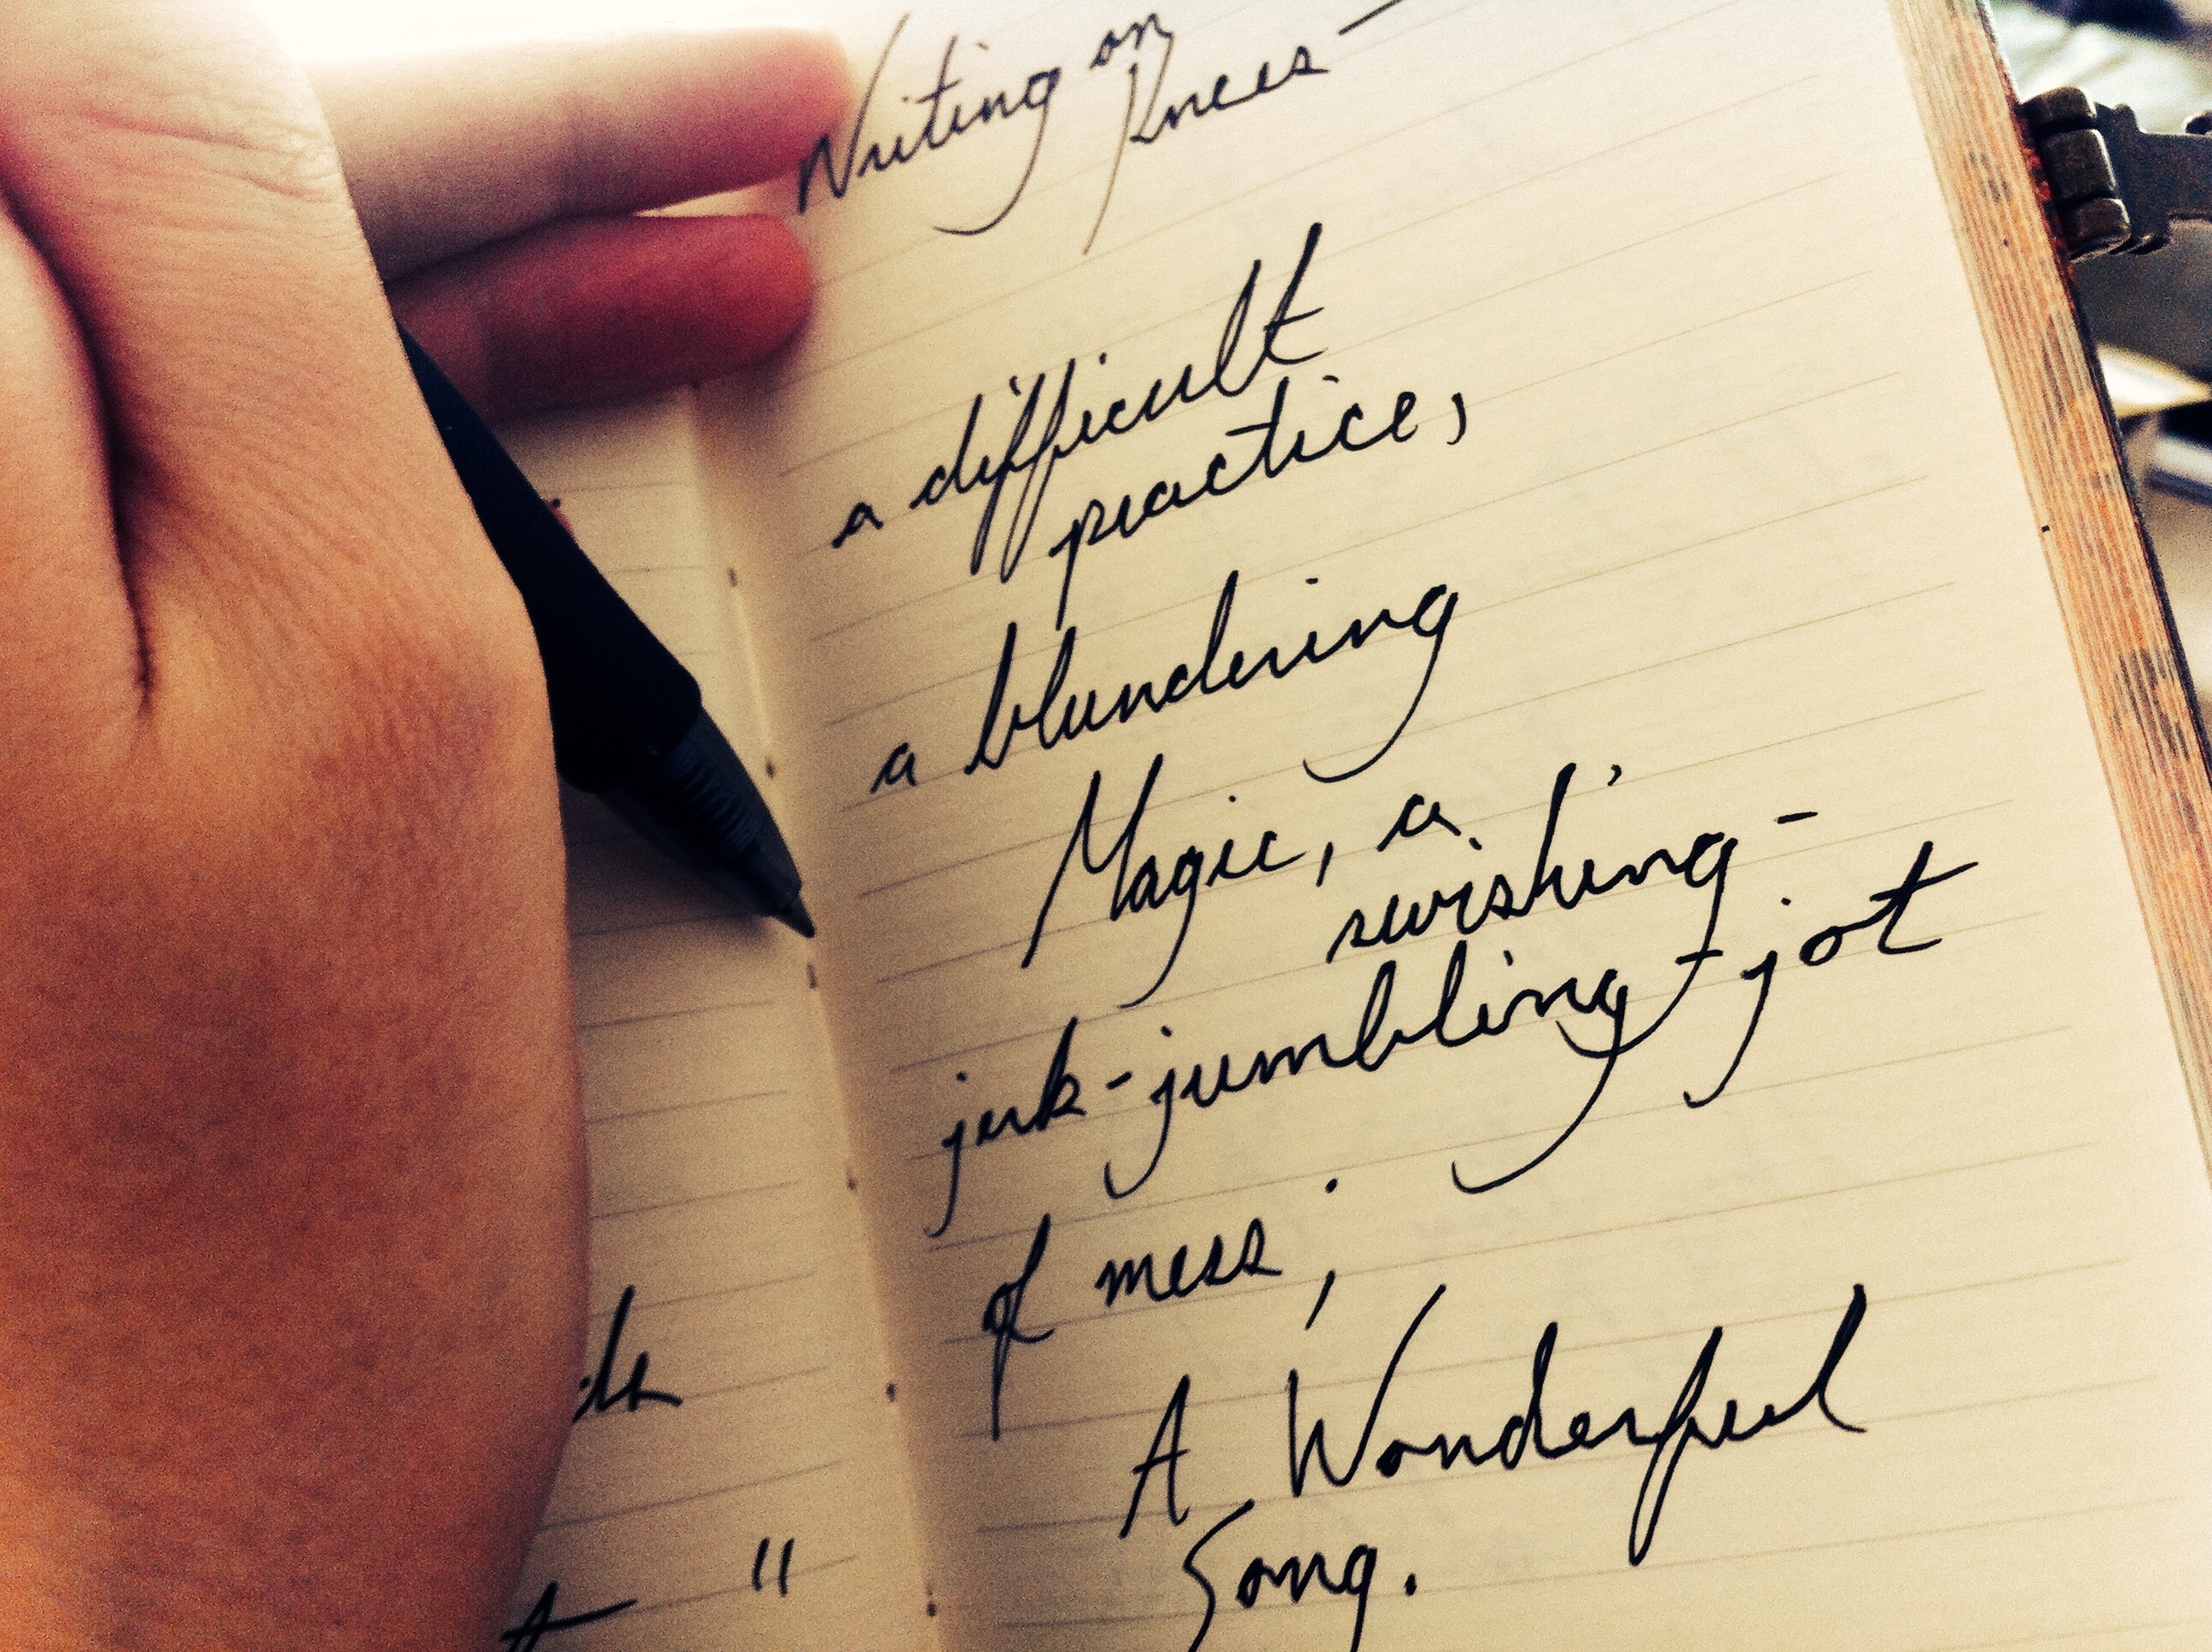 Writing on
Knees—
a difficult
practice,
a blundering
Magic, a
swishing-
jerk-jumbling-jot
of mess;
A Wonderful
Song.
"